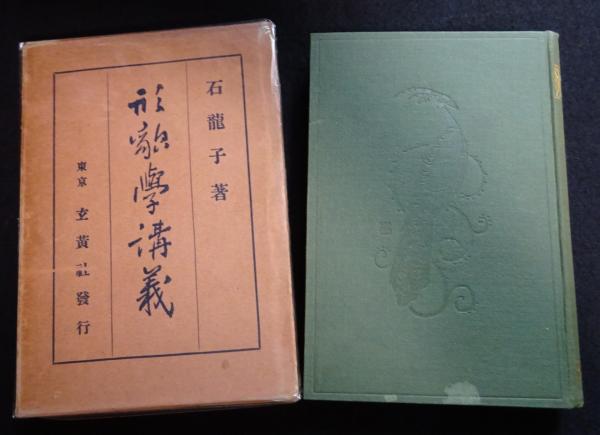 石龍子著
形貌學講義
東京 玄黃社發行